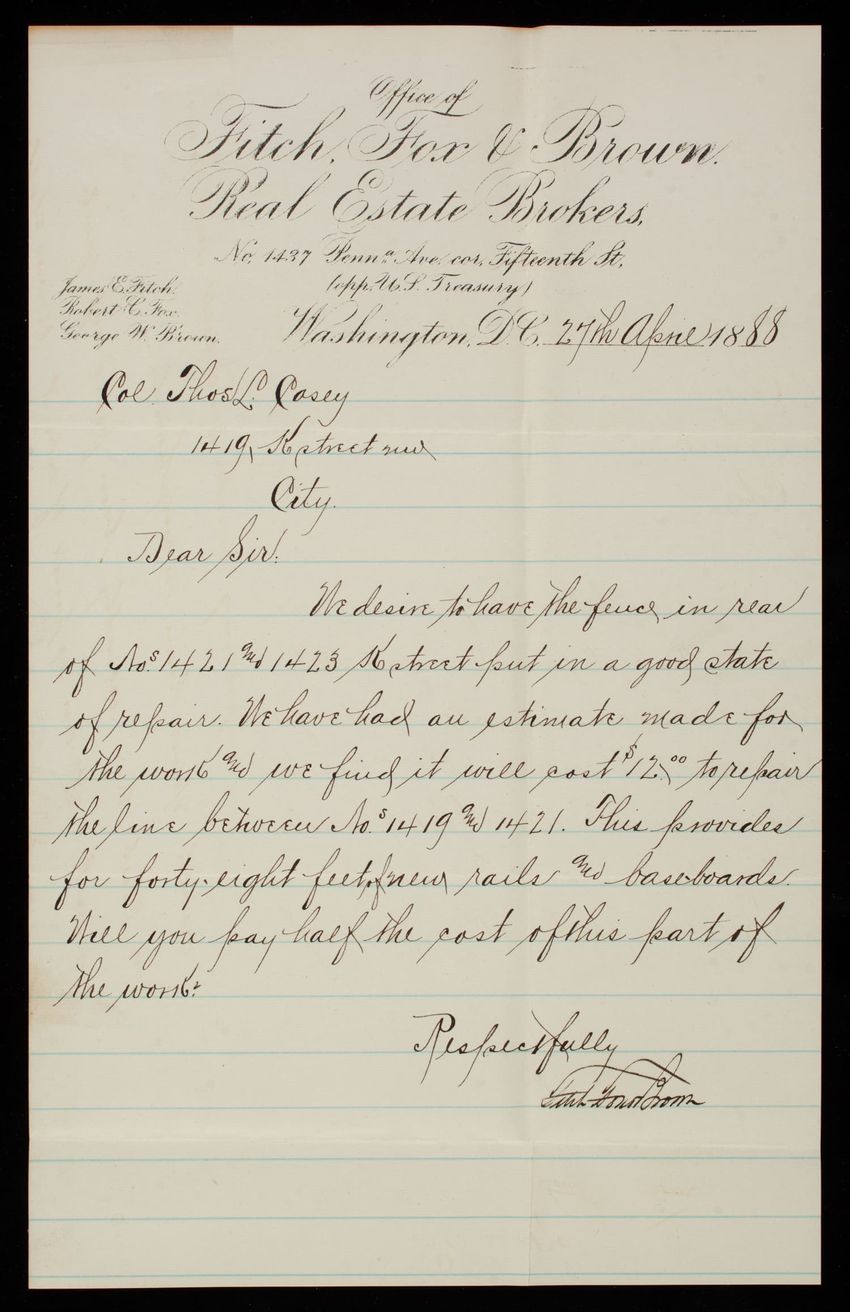 Office of
Fitch, Fox & Brown.
Real Estate Brokers,
No. 1437 Penna. Ave. cor. Fifteenth St,
(opp. U.S. Treasury)
James E. Fitch.
Robert C. Fox.
George W. Brown.
Washington, D.C. 27th April 1888
Col. Thos L. Casey
1419, K street nw
City.
Dear Sir:
We desire to have the fence in rear
of Nos. 1421 and 1423 K street put in a good state
of repair. We have had an estimate made for
the work and we find it will cost $12.00 to repair
the line between No.s 1419 and 1421. This provides
for forty-eight feet, of new rails and baseboards.
Will you pay half the cost of this part of
the work?
Respectfully
Fitch Fox & Brown